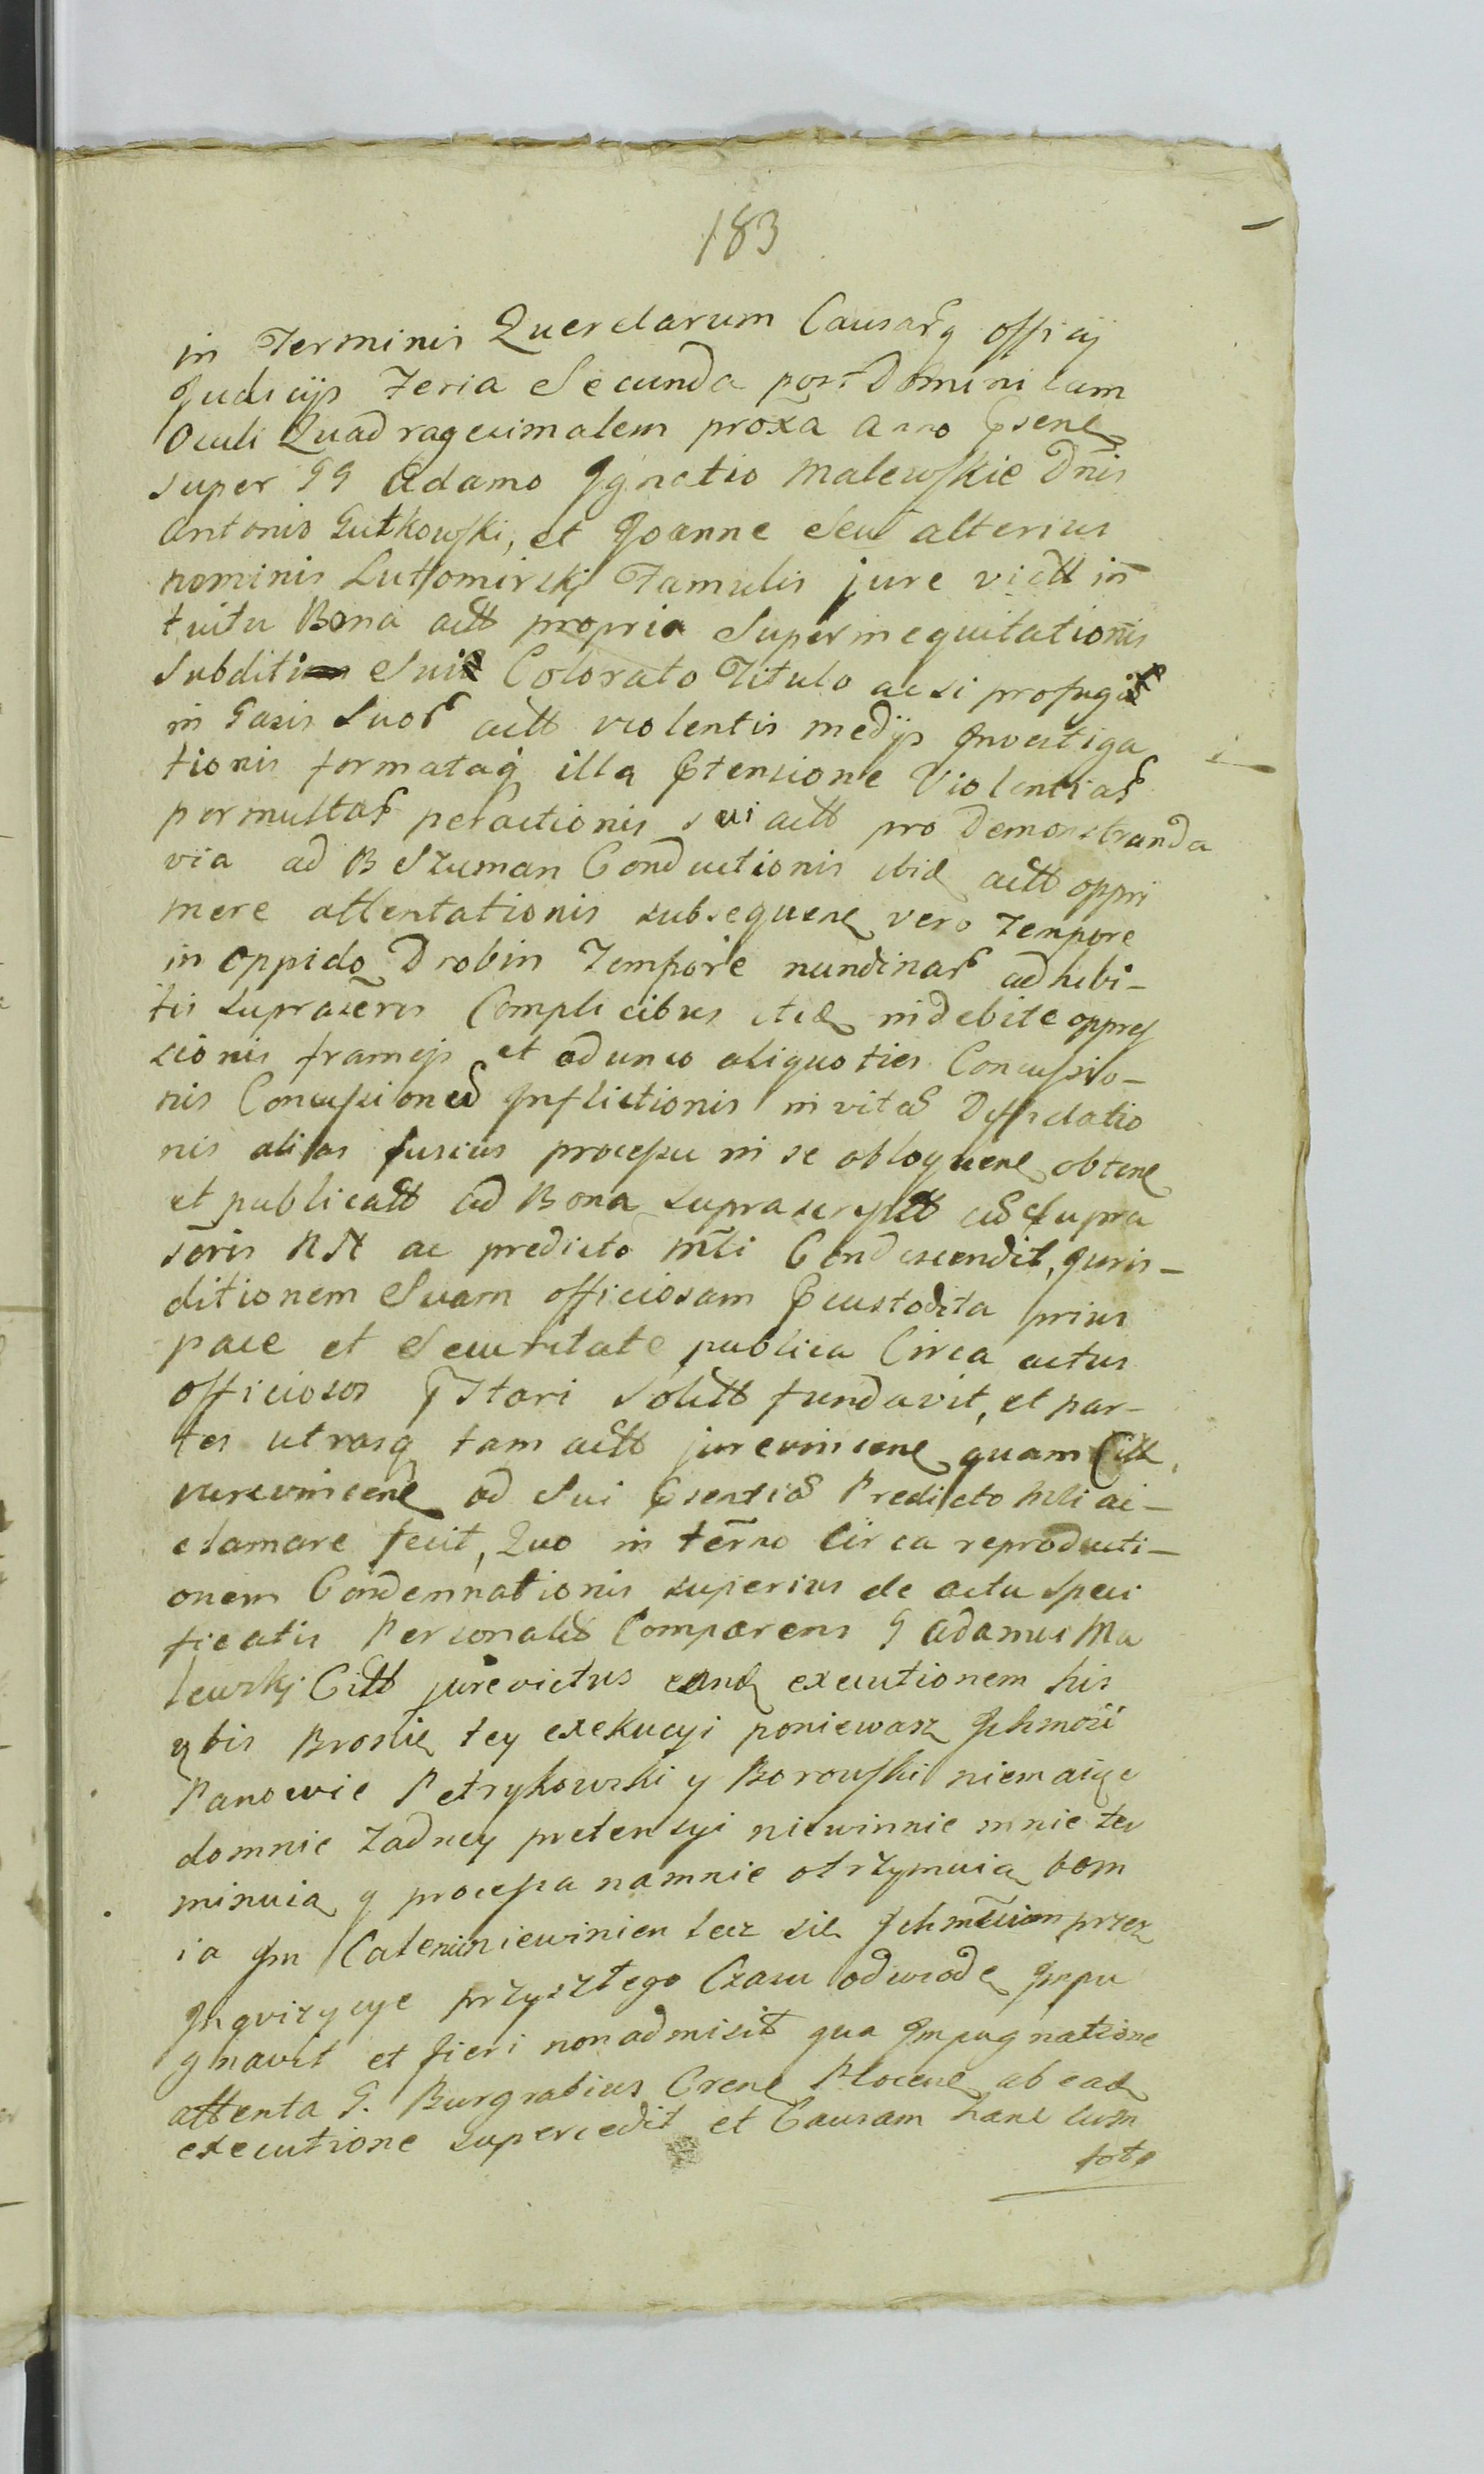 183
in Terminis Querelarum Causarq officij
Judicijs Feria Secunda post Dominicam
Oculi Quadragesimalem proxa Anno Psene
super GG Adamo Ignatio Malewskie Dnis
Antonio Gutkowski, et Joanne Seu alterius
nominis Lutomirskj Famulis jure victt in
tuitu Bona actt propria Superinequitationis
Subditi Sui Colorato Titulo acsi profugi
in Gazis Suor actt violentis medijs Investiga
tionis formataq illa Ptensione Violentiar
permultar peractionis sui actt pro demonstranda
via ad B Szuman Conductionis ibid actt oppri
mere attentationis subsequene vero Tempore
in oppido Drobin Tempore nundinar adhibi-
tis supraseris Complicibus indebite oppres
sionis frameis et adunco aliquoties Concussio-
nis Concussioned Inflictionis invita Diffidatio
nis alias fusius processu in se obloquene obtene
et publicatt ad Bona suprascriptt supra
soris NN ac predicto Mli Condescendit, Juris-
ditionem Suam officiosam Pcustodita prius
pace et Securitate publica Circa actus
officiosos Pstari Solitt fundavit, et par-
tes utrasq tam actt jurevincene quam Citt
jurevincene ad Sui Psentia Predicto Mli ac-
clamare fecit, Quo in terno Circa reproducti-
onem Condemnationis superius de actu speci
ficatis Personalit Comparens G Adamus Ma
lewskj Citt jurevictus eand executionem his
vbis Bronie tey exekucyi poniewasz Ichmosci
Panowie Petrykowski y Borowski niemaiąc
domnie Zadney pretensyi niewinnie mnie ter
minuią y processa namnie otrzymuią bom
ia Im Calem niewinien lecz się Ichmciom przez
Inqvizycye przyszłego Czasu odwiodę Impu
gnavit et fieri non admisit qua Impugnatione
attenta G. Burgrabius Crene Plocene ab ead
executione supersedit et Causam hanc cum
toto